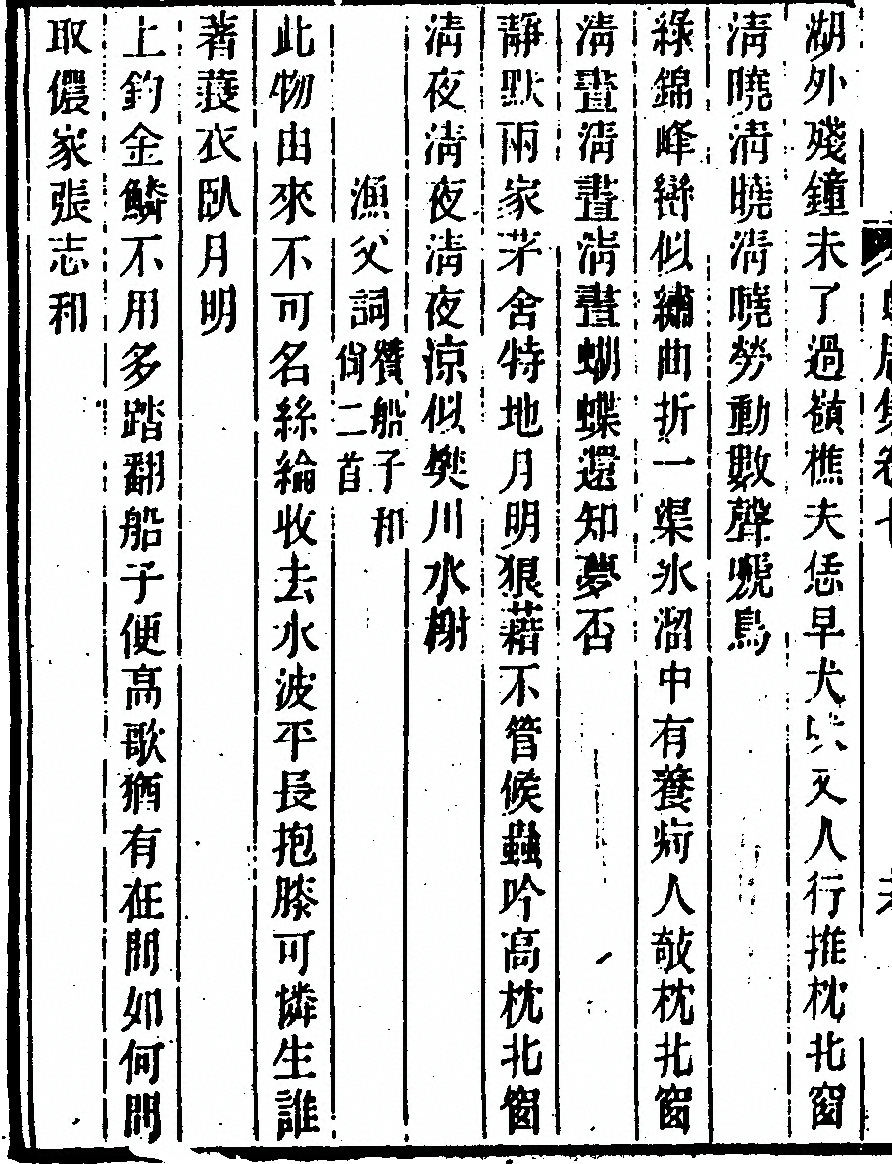 湖外殘鐘未了過嶺樵夫恁早犬吠又人行推枕北窗
清曉清曉清曉勞動數聲號鳥
綠錦峰巒似繡曲折一渠氷溜中有養疴人攲枕北窗
清晝清晝清晝蝴蝶還知夢否
靜默兩家茅舍特地月明狼藉不管候蟲吟高枕北窗
清夜清夜清夜涼似樊川水榭
漁父詞贊船子和尙二首
此物由來不可名絲綸收去水波平長抱膝可憐生誰
著蓑衣臥月明
上釣金鱗不用多踏翻船子便高歌猶有在閒如何問
取儂家張志和